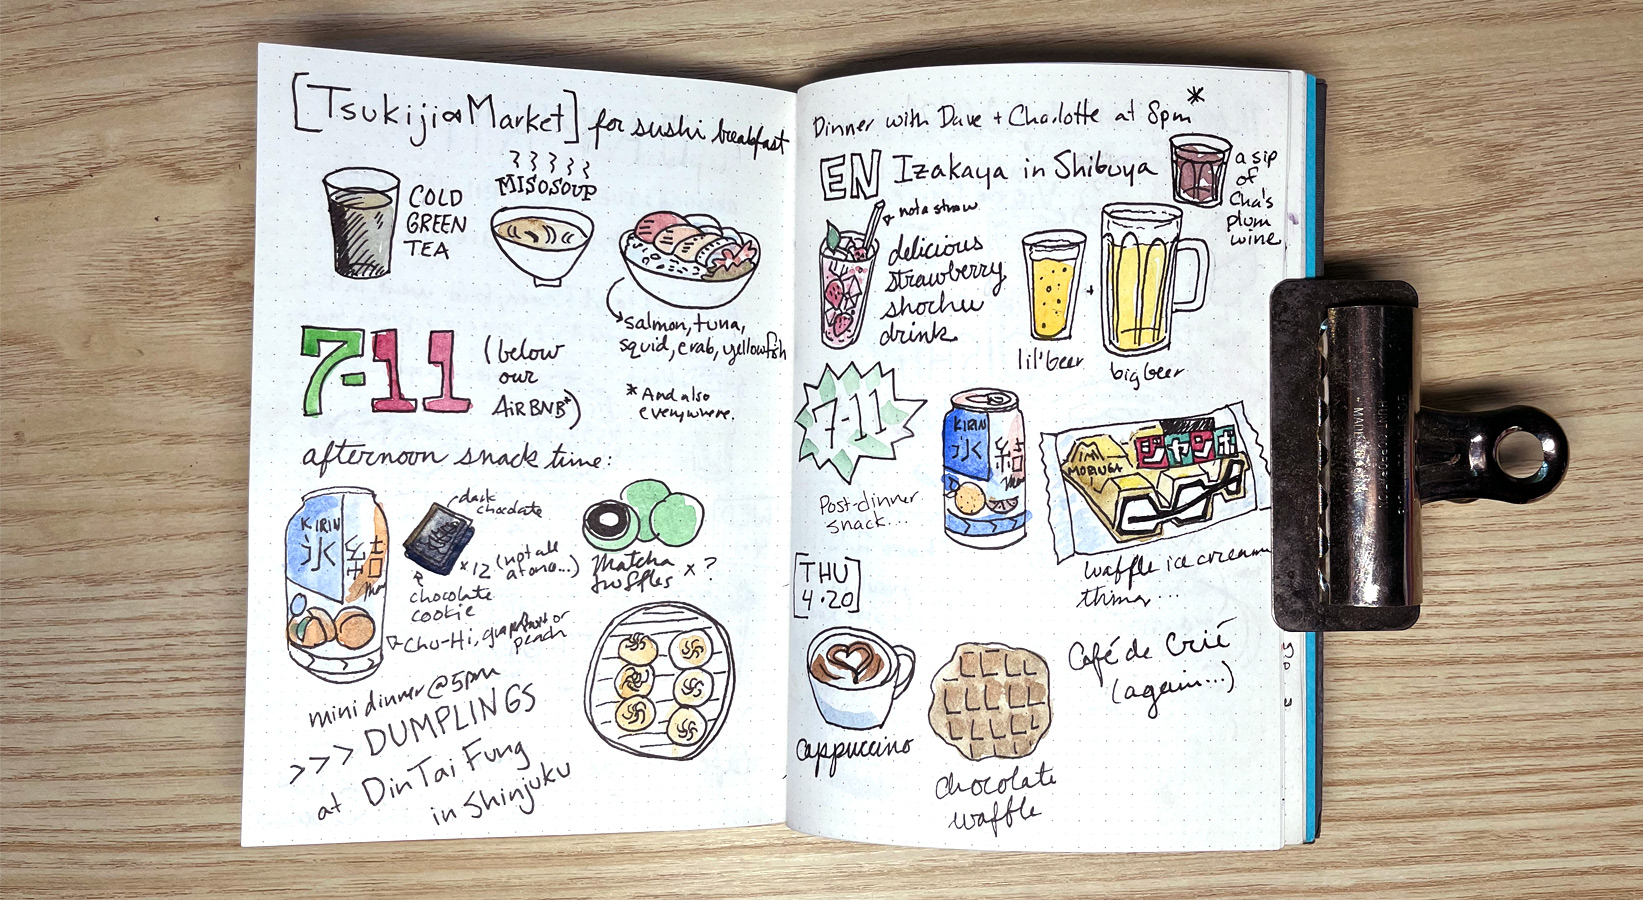 [Tsukiji Market] for sushi breakfast
COLD
GREEN
TEA
MISO SOUP
salmon, tuna,
squid, crab, yellowfish
7-11
(below
our
AiRBNB*)
* And also
everywhere.
afternoon snack time:
KIRIN
氷結
dark
chocolate
x12 (not all
at once...)
chocolate
cookie
Matcha
truffles x ?
Chu-Hi, grapefruit or
peach
mini dinner @ 5pm
>>> DUMPLINGS
at Din Tai Fung
in Shinjuku
Dinner with Dave + Charlotte at 8pm*
EN Izakaya in Shibuya
a sip
of
Cha's
plum
wine
not a straw
delicious
strawberry
shochu
drink
lil' beer
+
big beer
7-11
Post-dinner
snack...
KIRIN
氷結
MORINAGA
ジャンボ
waffle ice cream
thing...
[THU
4.20]
cappuccino
chocolate
waffle
Café de Crié
(again...)